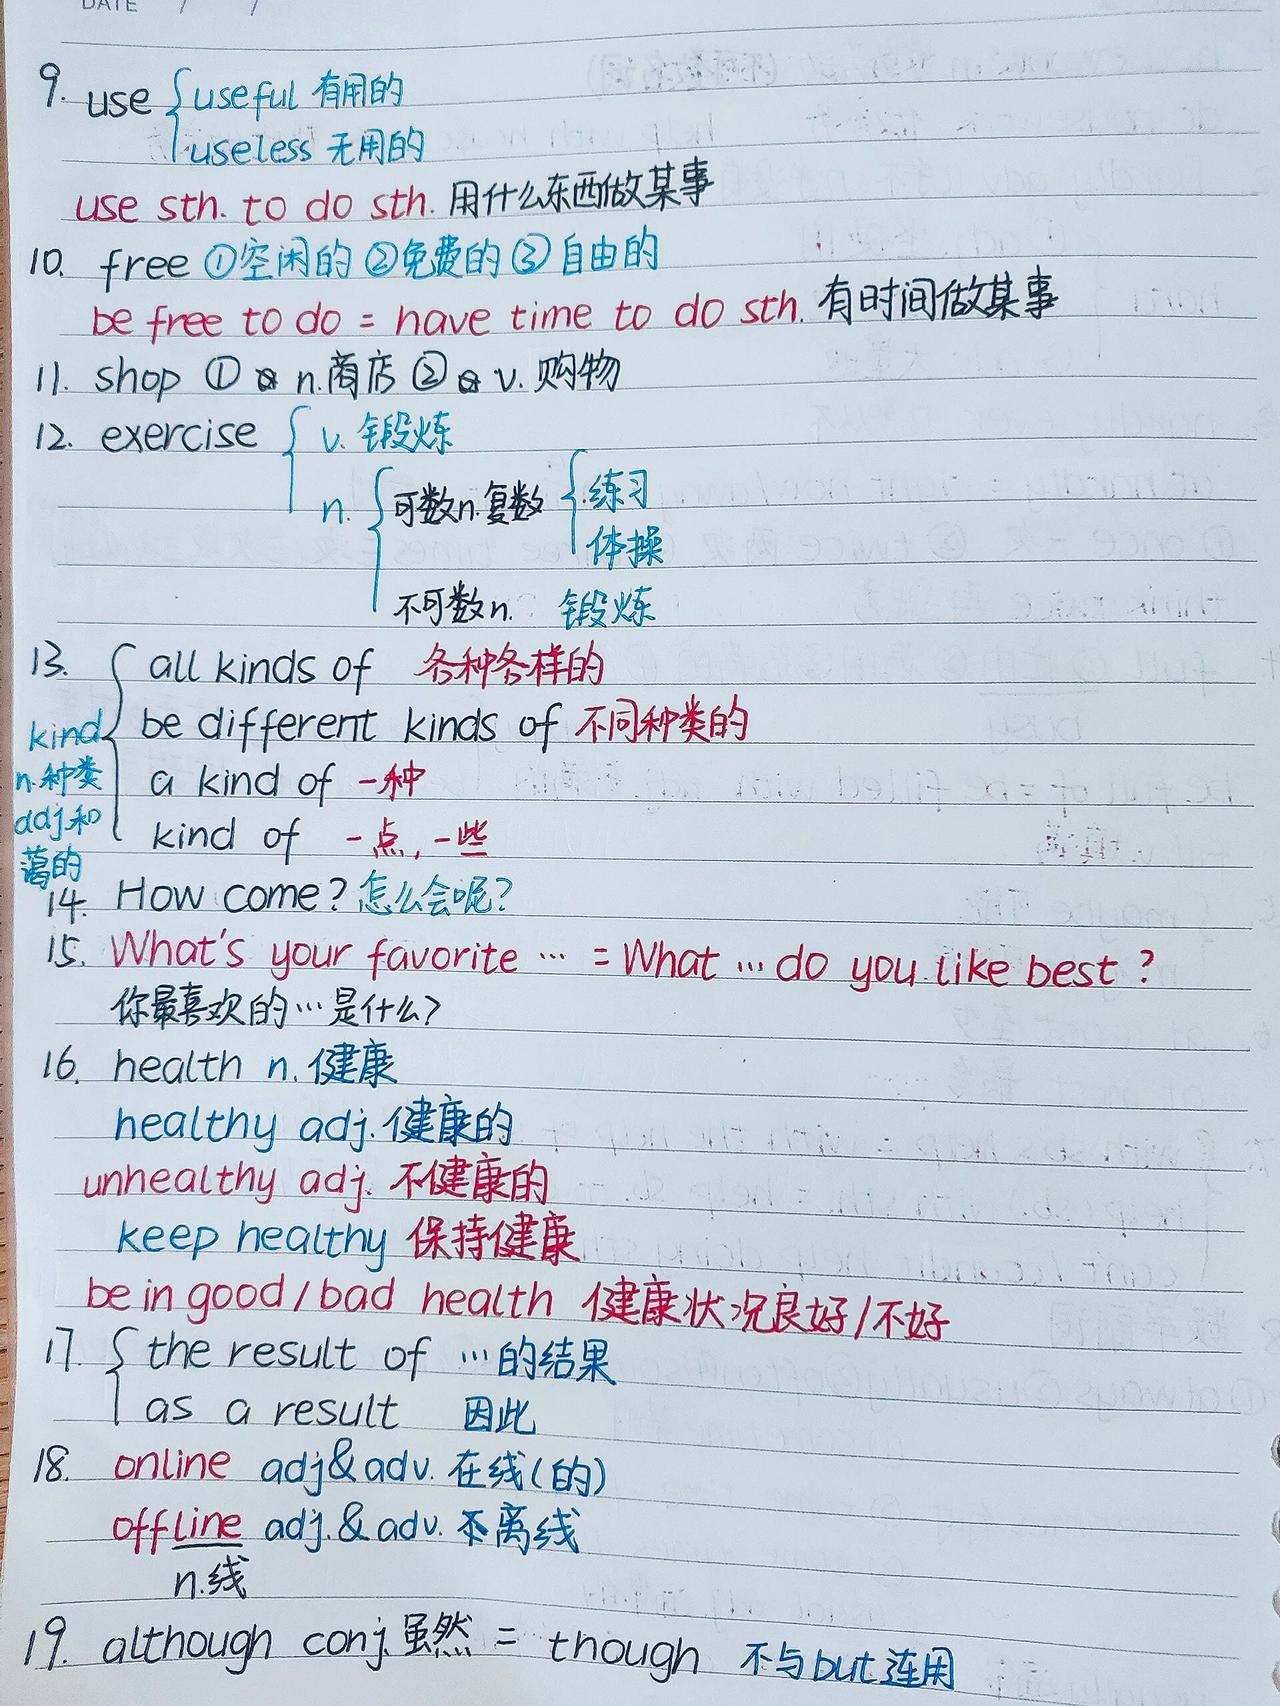 DATE / /
9. use { useful 有用的
useless 无用的
use sth. to do sth. 用什么东西做某事
10. free ①空闲的 ②免费的 ③自由的
be free to do = have time to do sth. 有时间做某事
11. shop ① n.商店 ② v. 购物
12. exercise { v. 锻炼
n. { 可数n.复数 { 练习
体操
不可数n. 锻炼
13. { all kinds of 各种各样的
kind be different kinds of 不同种类的
n.种类 a kind of 一种
adj.和 kind of 一点,一些
蔼的
14. How come? 怎么会呢?
15. What's your favorite … = What … do you like best ?
你最喜欢的…是什么?
16. health n. 健康
healthy adj. 健康的
unhealthy adj. 不健康的
keep healthy 保持健康
be in good / bad health 健康状况良好/不好
17. { the result of …的结果
as a result 因此
18. online adj&adv. 在线(的)
offline adj.&adv. 离线
n.线
19. although conj.虽然 = though 不与but连用